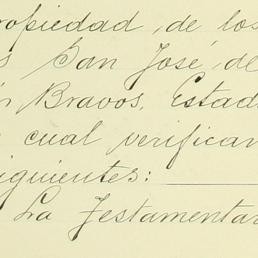 ropiedad, de los
s San José, de
n Bravos, Estad
cual verifican
iguientes:
La Testamentar